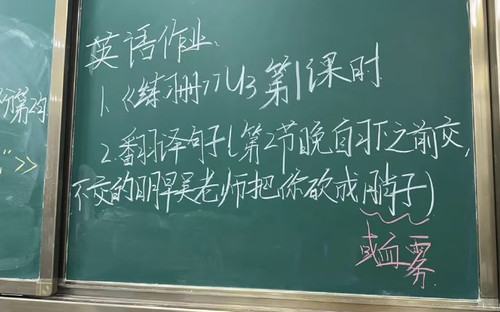 英语作业、
1、《练册》U3 第1课时
第2沟
2.翻译句子(第2节晚自习下之前交,
">>
不交的明早吴老师把你砍成臊子)
或血雾